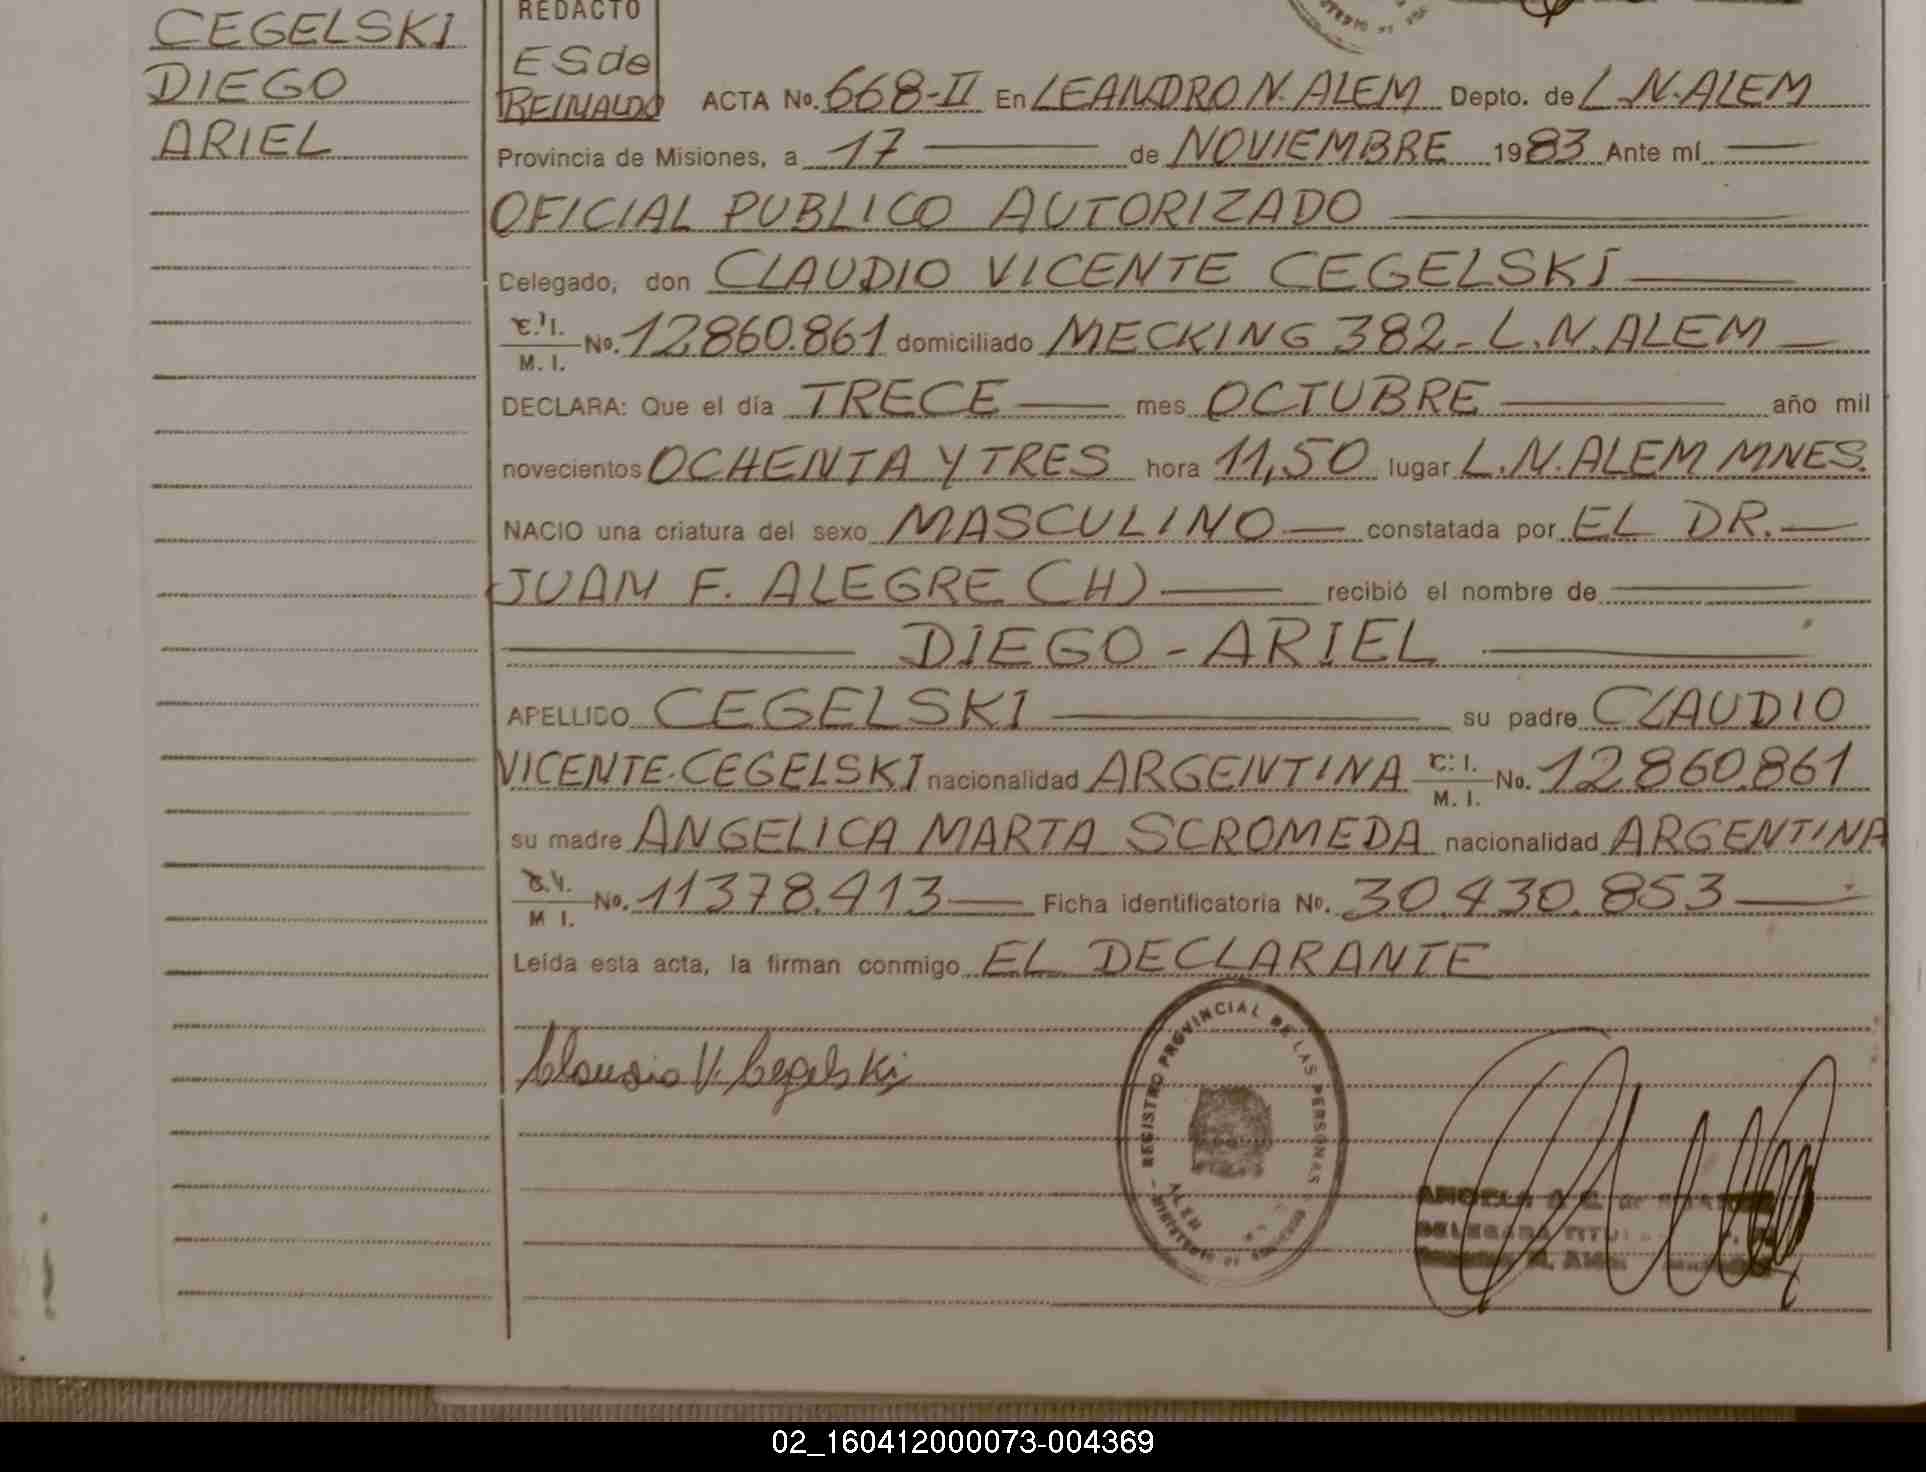 CEGELSKI
DIEGO
ARIEL
REDACTO
ESde
REINALDO
ACTA No. 668-II En LEANDRO N. ALEM Depto. de L.N.ALEM
Provincia de Misiones, a 17 de NOVIEMBRE 1983 Ante mí
OFICIAL PUBLICO AUTORIZADO
Celegado, don CLAUDIO VICENTE CEGELSKI
C.I. M. I. No. 12.860.861 domiciliado MECKING 382-L.N.ALEM
DECLARA: Que el día TRECE mes OCTUBRE año mil
novecientos OCHENTA Y TRES hora 11,50 lugar L.N.ALEM MNES.
NACIO una criatura del sexo MASCULINO constatada por EL DR.
JUAN F. ALEGRE (H) recibió el nombre de
DIEGO-ARIEL
APELLIDO CEGELSKI su padre CLAUDIO
VICENTE.CEGELSKI nacionalidad ARGENTINA C.I. M. I. No. 12.860.861
su madre ANGELICA MARTA SCROMEDA nacionalidad ARGENTINA
M I. No. 11378.413 Ficha identificatoria No. 30.430.853
Leída esta acta, la firman conmigo EL DECLARANTE
Claudio V. Cegelski
REGISTRO PROVINCIAL DE LAS PERSONAS
ALEM
MINISTERIO DE
02_160412000073-004369